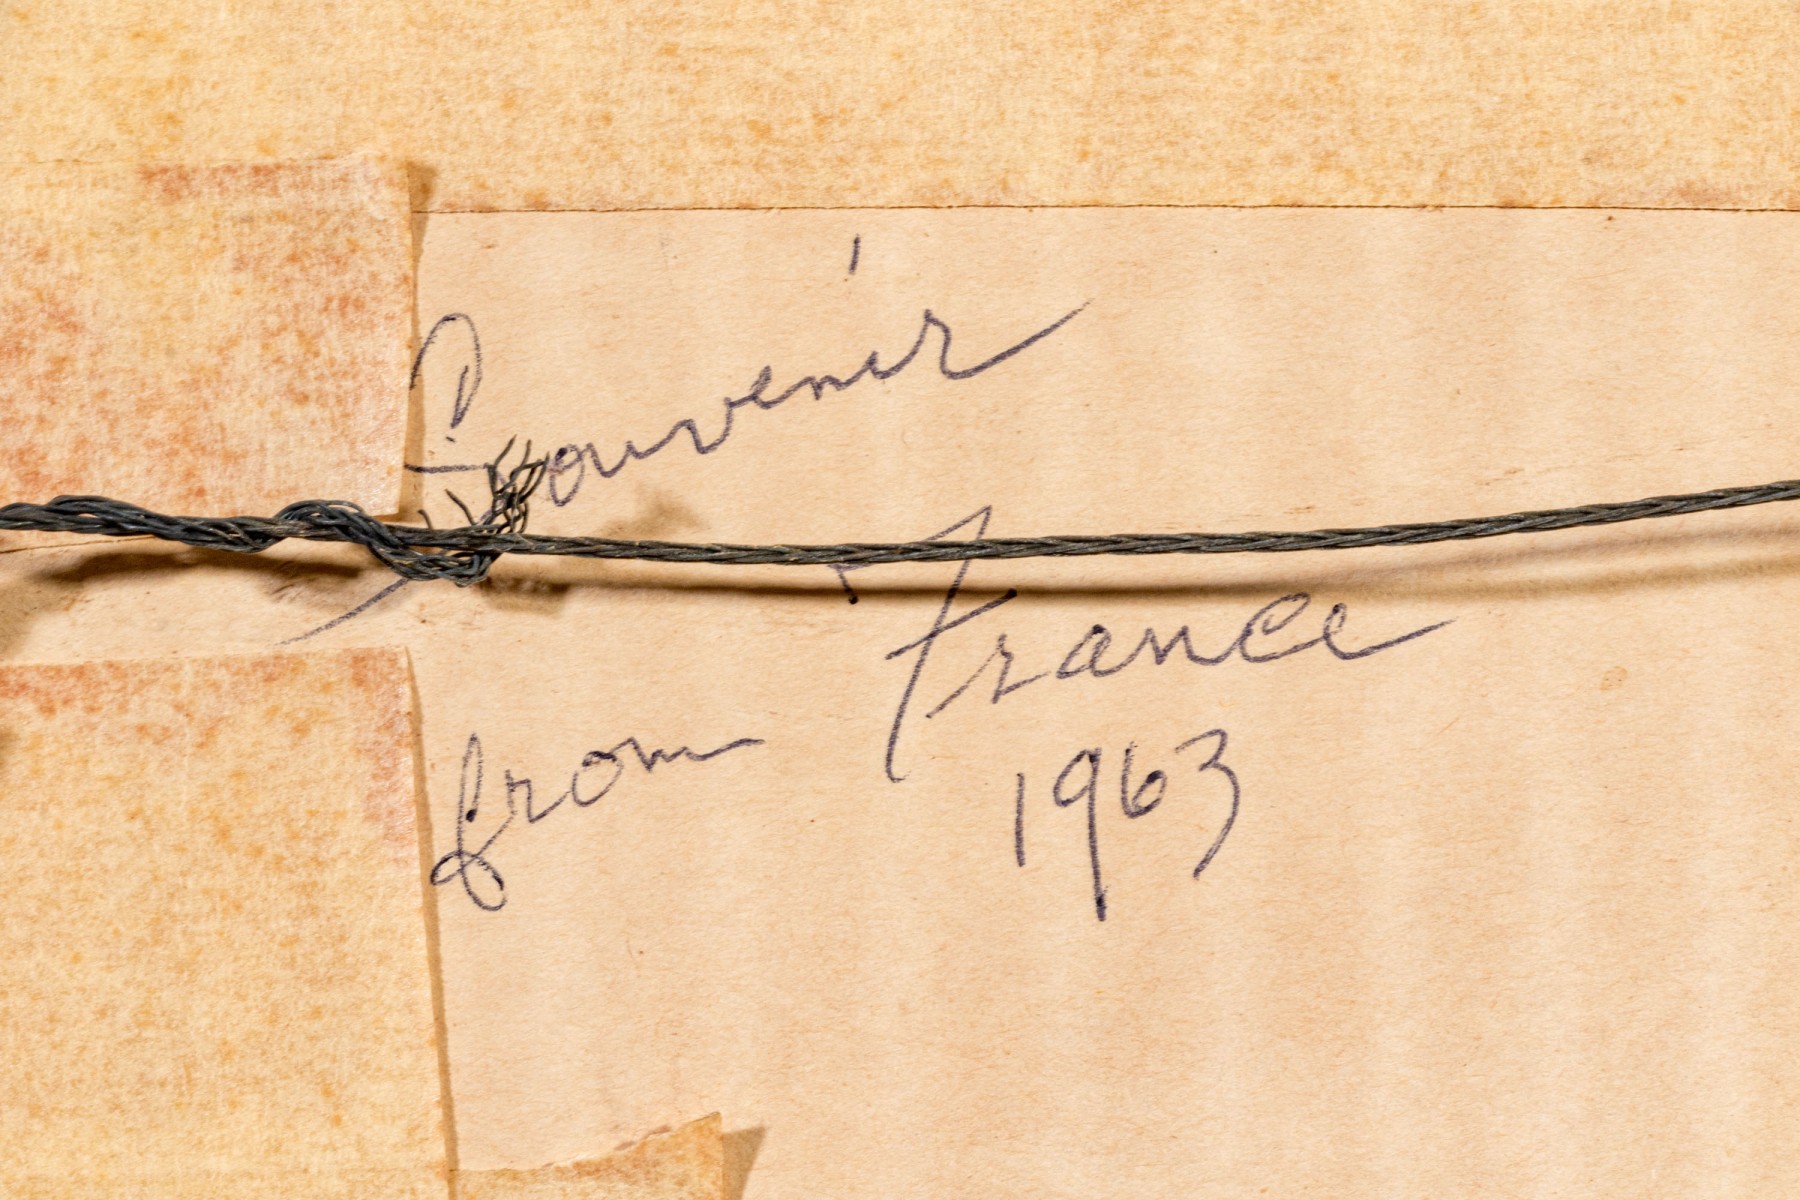 Souvenir
from France
1963